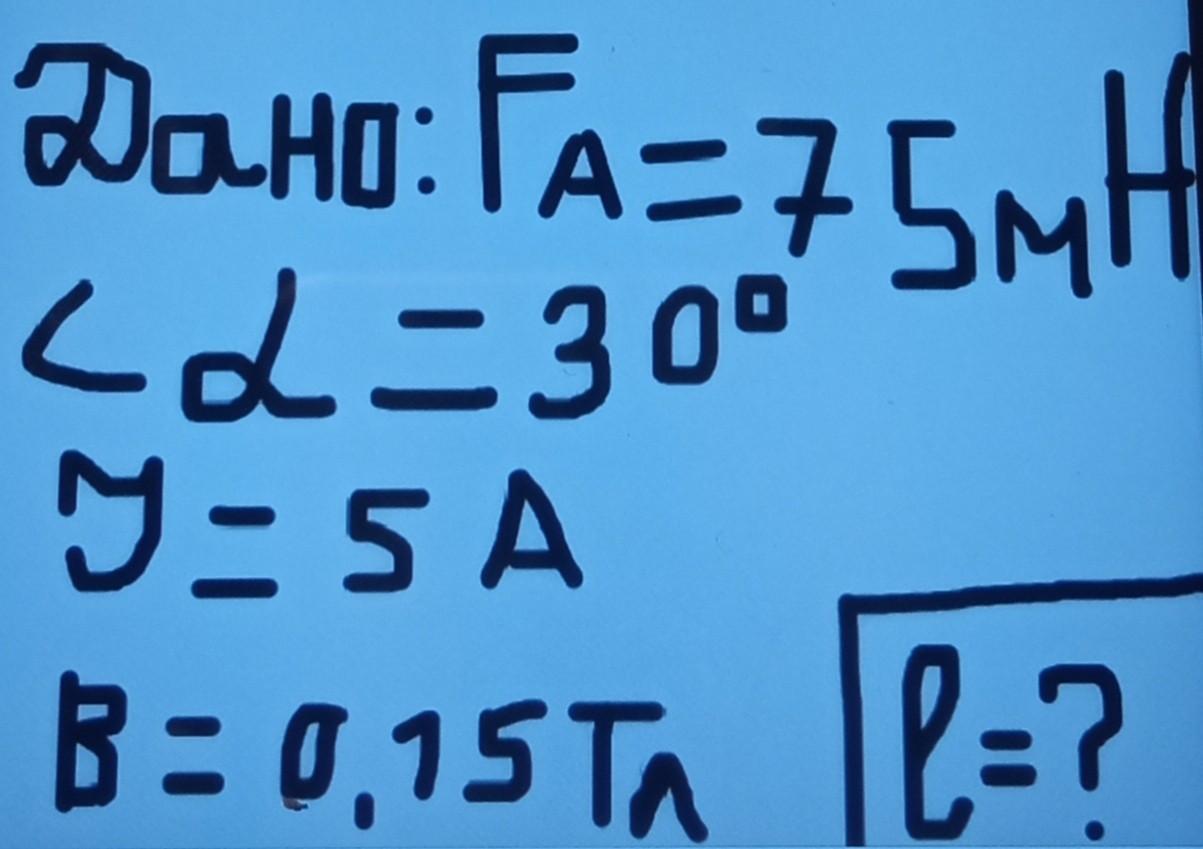 Дано: FА=75мН
<α=30°
I=5А
B=0,15Тл
l=?